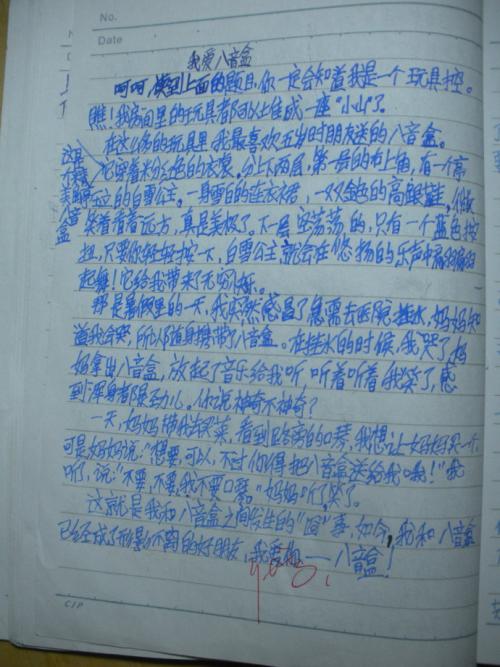 No.
Date
我爱八音盒
呵呵,读到上面的题目,你一定会知道我是一个玩具控。
瞧!我房间里的玩具都可以堆成一座“小山”了。
在这么多的玩具里,我最喜欢五岁时朋友送的八音盒。
这是个美丽的八音盒
它穿着粉红色的衣裳,分上下两层,第一层的右上角,有一个亭
亭玉立的白雪公主。一身雪白的连衣裙,一双金色的高跟鞋,微
笑着看着远方,真是美极了。下一层空荡荡的,只有一个蓝色按
扭,只要你轻轻按一下,白雪公主就会在悠扬的乐声中翩翩
起舞!它给我带来无穷乐。
那是暑假里的一天,我突然感冒了急需去医院挂水,妈妈知
道我会哭,所以随身携带了八音盒。在挂水的时候,我哭了,妈
妈拿出八音盒,放起了音乐给我听,听着听着我笑了,感
到浑身都是劲儿。你说神奇不神奇?
一天,妈妈带我去买菜,看到路旁的口琴,我想让妈妈买一个,
可是妈妈说:“想要可以,不过你得把八音盒送给我哦!”我
听了,说:“不要,不要,我不要口琴。”妈妈听了笑了。
这就是我和八音盒之间发生的“ 事,如今,我和八音盒
已经成了形影不离的好朋友,我爱 ——八音盒!
CIP